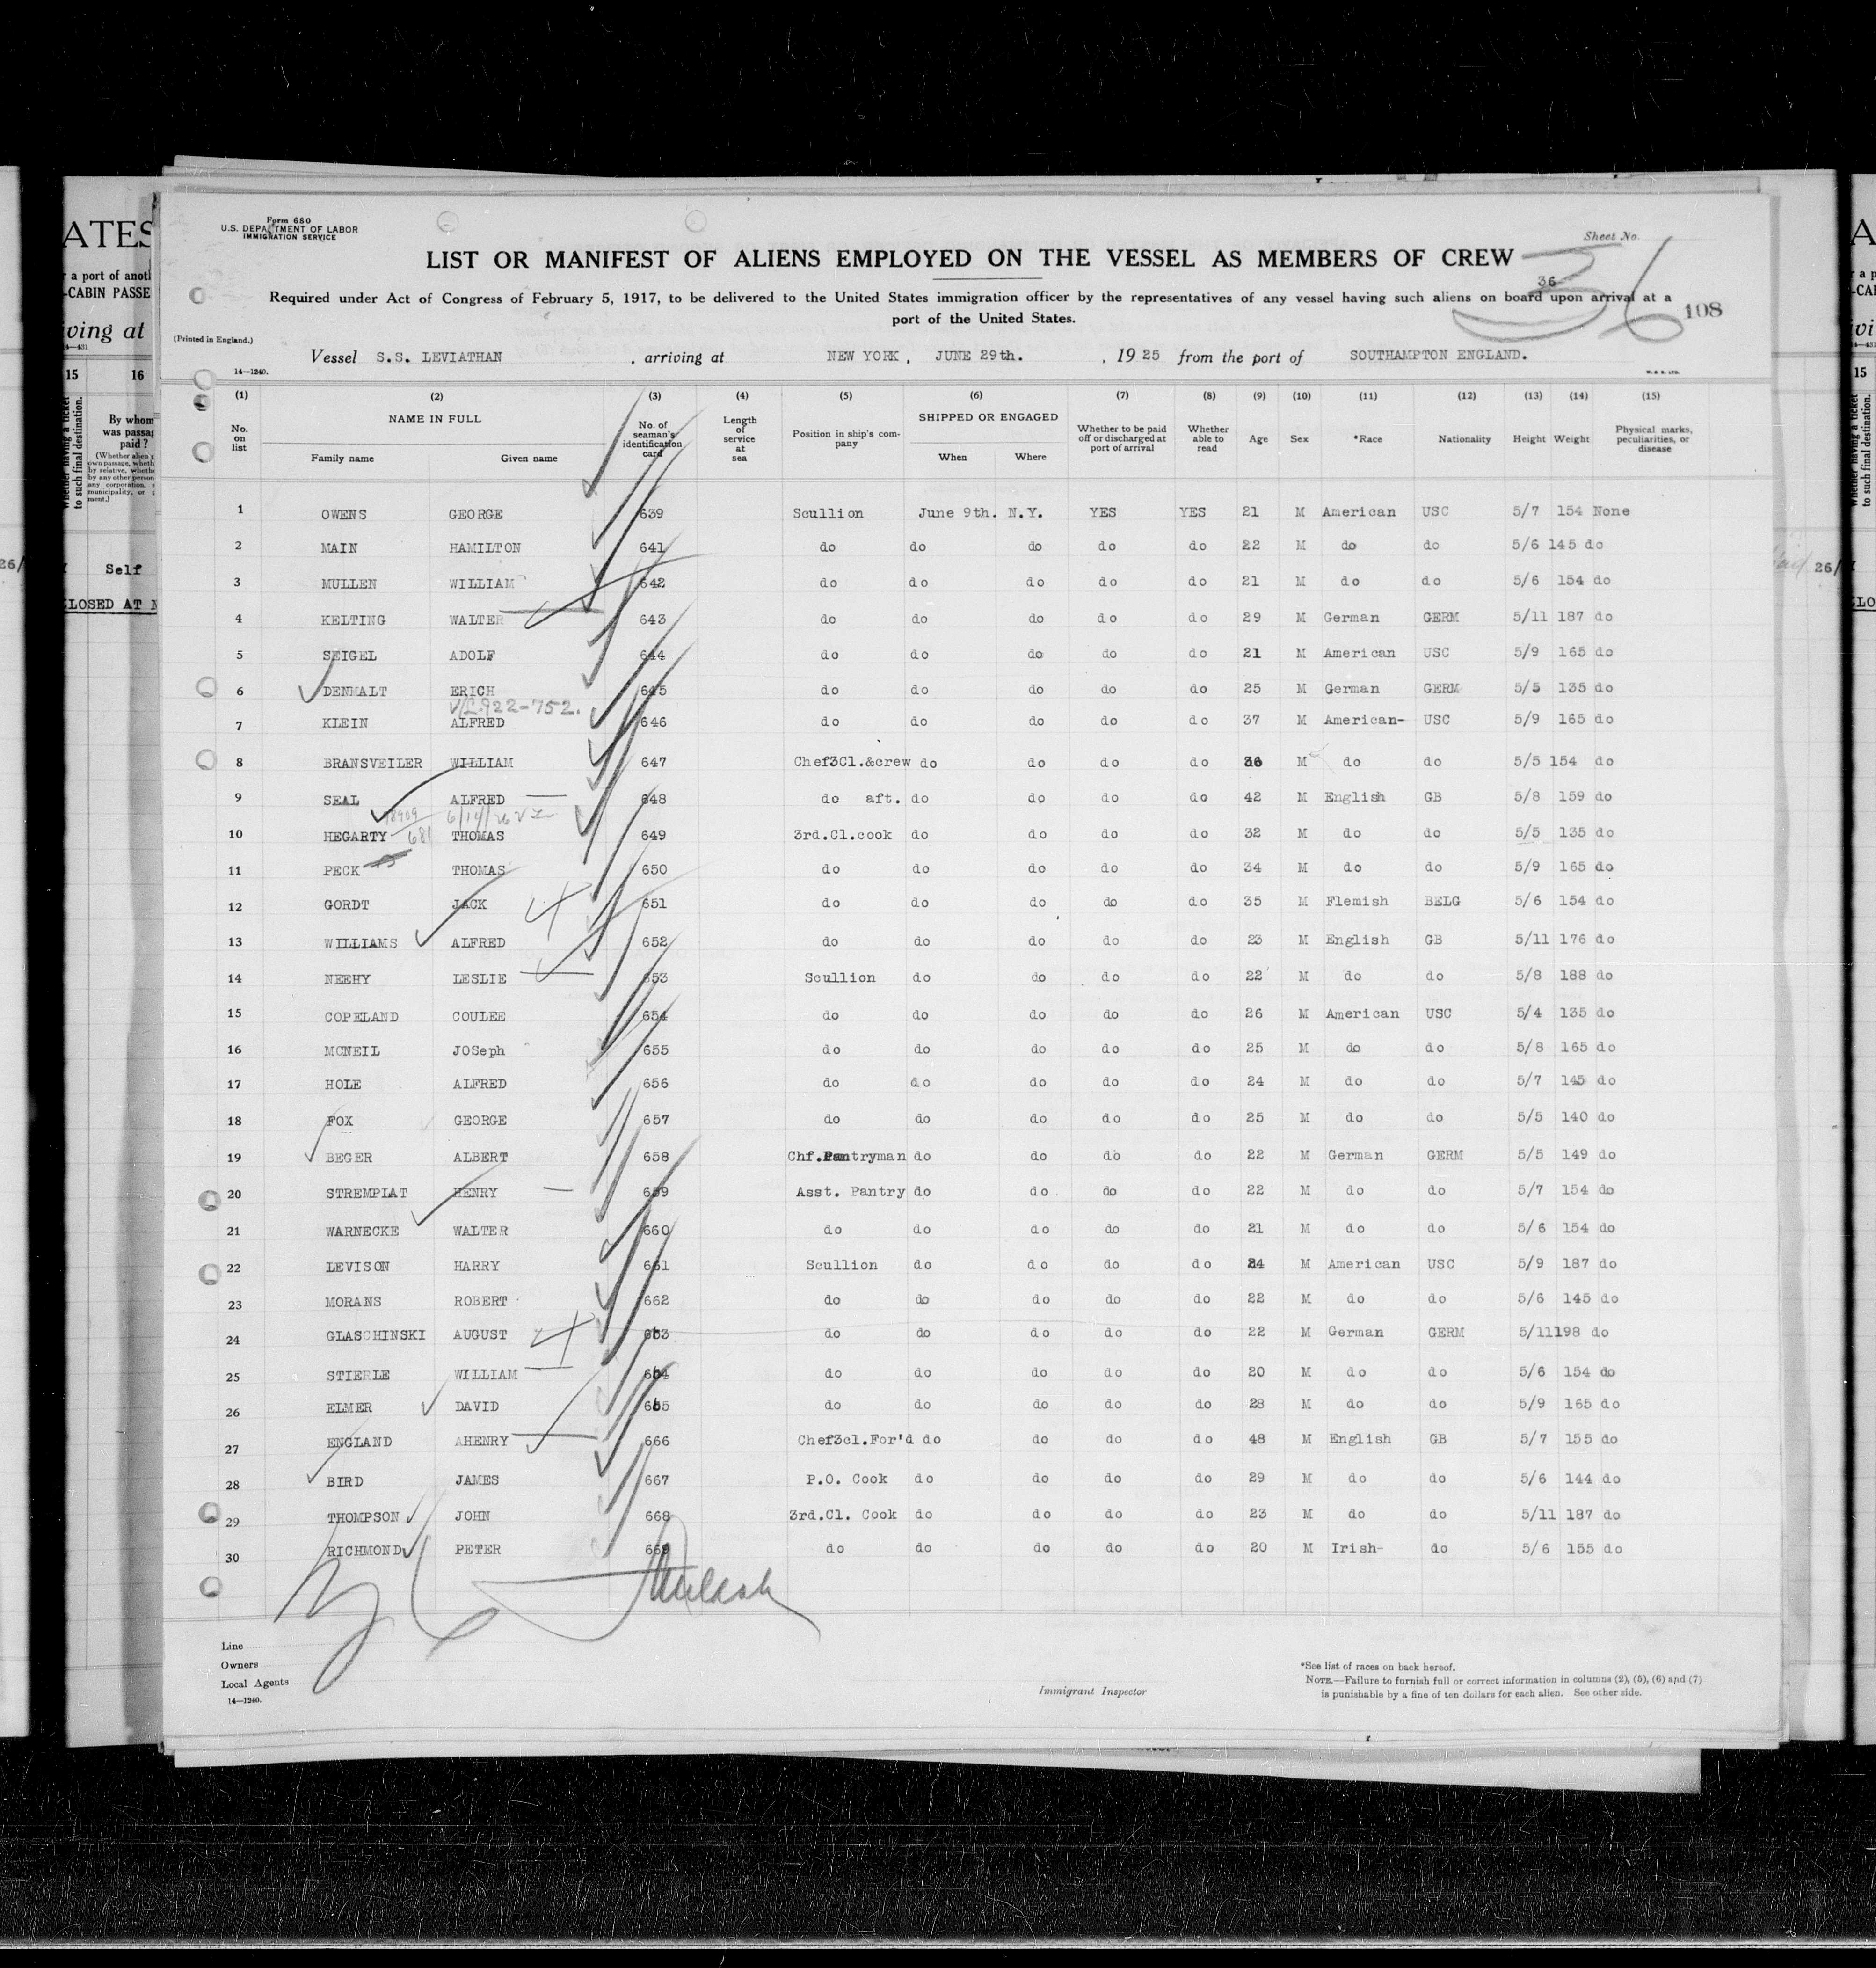 Form 680
U.S. DEPARTMENT OF LABOR
IMMIGRATION SERVICE
Sheet No.
LIST OR MANIFEST OF ALIENS EMPLOYED ON THE VESSEL AS MEMBERS OF CREW
36
36
Required under Act of Congress of February 5, 1917, to be delivered to the United States immigration officer by the representatives of any vessel having such aliens on board upon arrival at a
port of the United States.
108
(Printed in England.)
Vessel S.S. LEVIATHAN , arriving at NEW YORK , JUNE 29th. , 19 25 from the port of SOUTHAMPTON ENGLAND.
14—1240.
(1) (2) (3) (4) (5) (6) (7) (8) (9) (10) (11) (12) (13) (14) (15)
No. on list NAME IN FULL Family name Given name No. of seaman's identification card Length of service at sea Position in ship's company SHIPPED OR ENGAGED When Where Whether to be paid off or discharged at port of arrival Whether able to read Age Sex *Race Nationality Height Weight Physical marks, peculiarities, or disease
1 OWENS GEORGE 639 Scullion June 9th. N.Y. YES YES 21 M American USC 5/7 154 None
2 MAIN HAMILTON 641 do do do do do 22 M do do 5/6 145 do
3 MULLEN WILLIAM 642 do do do do do 21 M do do 5/6 154 do
4 KELTING WALTER 643 do do do do do 29 M German GERM 5/11 187 do
5 SEIGEL ADOLF 644 do do do do do 21 M American USC 5/9 165 do
6 DENMALT ERICH 645 do do do do do 25 M German GERM 5/5 135 do
922-752.
7 KLEIN ALFRED 646 do do do do do 37 M American- USC 5/9 165 do
8 BRANSVEILER WILLIAM 647 Chef3Cl.&crew do do do do 36 M do do 5/5 154 do
9 SEAL ALFRED 648 do aft. do do do do 42 M English GB 5/8 159 do
6/14/26
10 HEGARTY 681 THOMAS 649 3rd.Cl.cook do do do do 32 M do do 5/5 135 do
11 PECK THOMAS 650 do do do do do 34 M do do 5/9 165 do
12 GORDT JACK 651 do do do do do 35 M Flemish BELG 5/6 154 do
13 WILLIAMS ALFRED 652 do do do do do 23 M English GB 5/11 176 do
14 NEEHY LESLIE 653 Scullion do do do do 22 M do do 5/8 188 do
15 COPELAND COULEE 654 do do do do do 26 M American USC 5/4 135 do
16 MCNEIL JOSeph 655 do do do do do 25 M do do 5/8 165 do
17 HOLE ALFRED 656 do do do do do 24 M do do 5/7 145 do
18 FOX GEORGE 657 do do do do do 25 M do do 5/5 140 do
19 BEGER ALBERT 658 Chf.Pantryman do do do do 22 M German GERM 5/5 149 do
20 STREMPIAT HENRY 659 Asst. Pantry do do do do 22 M do do 5/7 154 do
21 WARNECKE WALTER 660 do do do do do 21 M do do 5/6 154 do
22 LEVISON HARRY 661 Scullion do do do do 24 M American USC 5/9 187 do
23 MORANS ROBERT 662 do do do do do 22 M do do 5/6 145 do
24 GLASCHINSKI AUGUST 663 do do do do do 22 M German GERM 5/11 198 do
25 STIERLE WILLIAM 664 do do do do do 20 M do do 5/6 154 do
26 ELMER DAVID 665 do do do do do 28 M do do 5/9 165 do
27 ENGLAND AHENRY 666 Chef3cl.For'd do do do do 48 M English GB 5/7 155 do
28 BIRD JAMES 667 P.O. Cook do do do do 29 M do do 5/6 144 do
29 THOMPSON JOHN 668 3rd.Cl. Cook do do do do 23 M do do 5/11 187 do
30 RICHMOND PETER 669 do do do do do 20 M Irish- do 5/6 155 do
Line
Owners
Local Agents
14—1240.
Immigrant Inspector
*See list of races on back hereof.
NOTE.—Failure to furnish full or correct information in columns (2), (5), (6) and (7)
is punishable by a fine of ten dollars for each alien. See other side.
ATES
r a port of anoth
-CABIN PASSE
iving at
15 16
Whether having a ticket to such final destination.
By whom was passage paid?
Self
CLOSED AT
26/